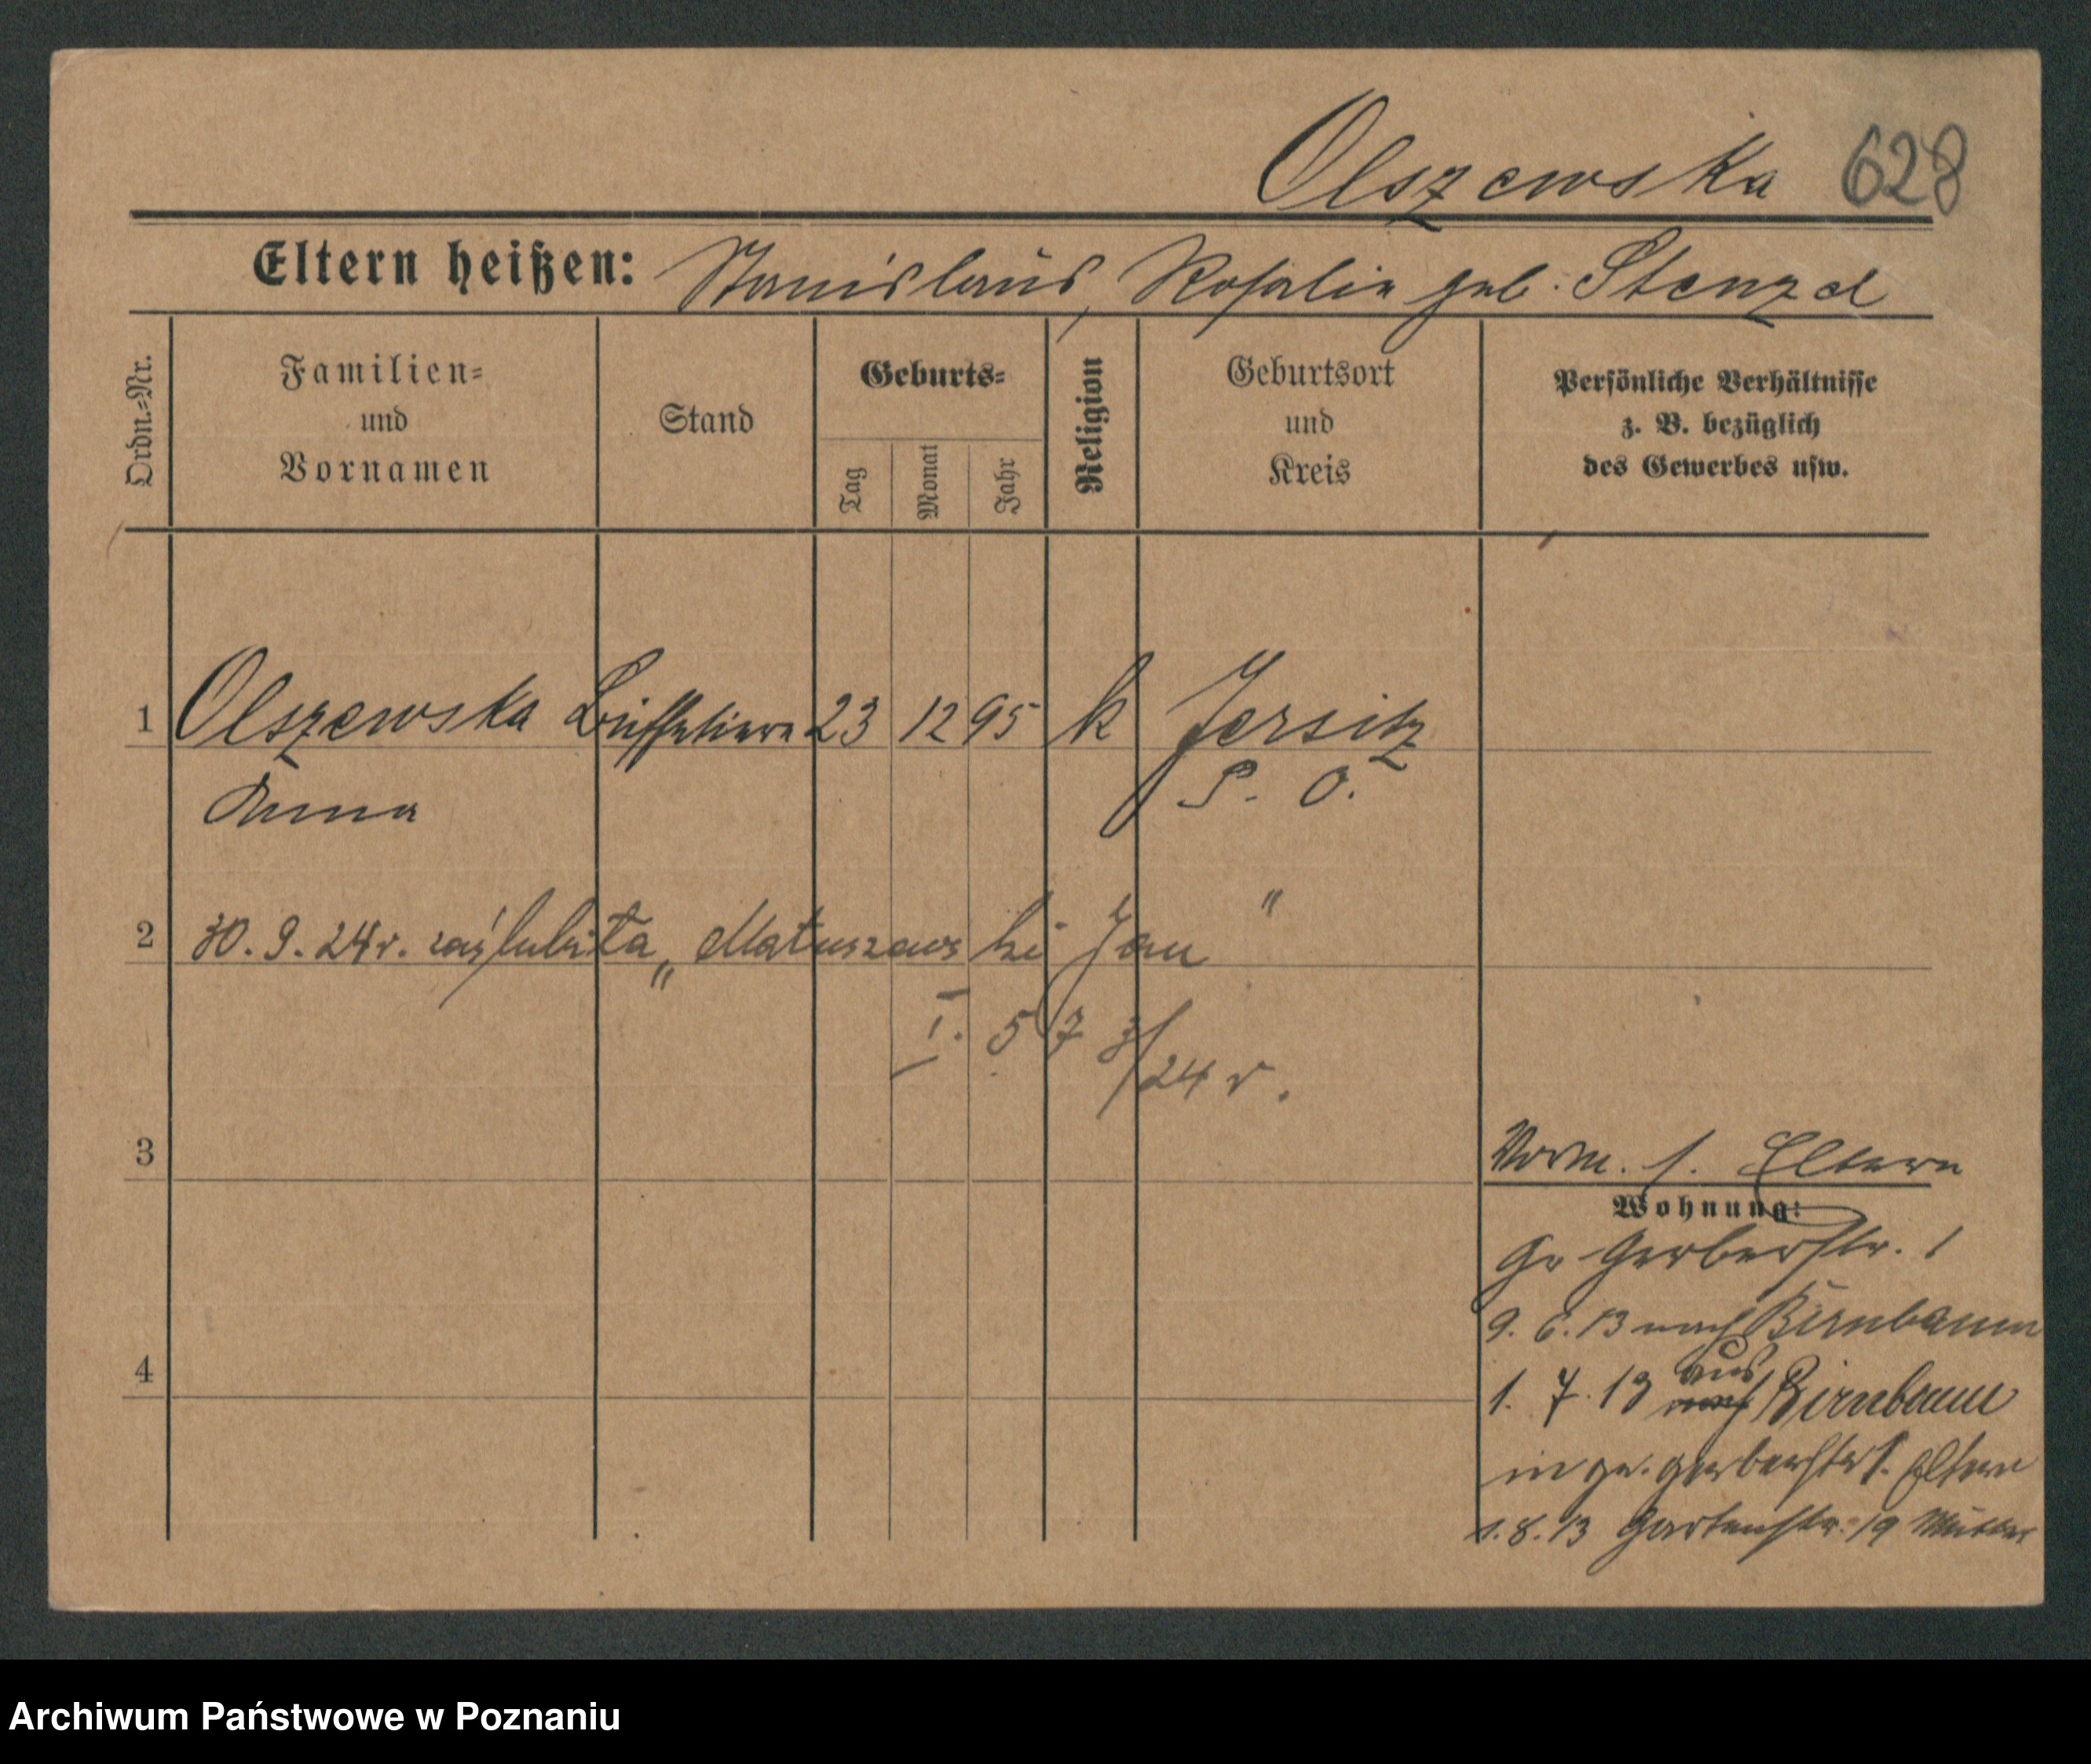 Olszewska 628
Eltern heißen: Stanislaus, Rosalie geb. Stenzel
Ordn.=Nr.
Familien=
und
Vornamen
Stand
Geburts=
Tag
Monat
Jahr
Religion
Geburtsort
und
Kreis
Persönliche Verhältnisse
z. B. bezüglich
des Gewerbes usw.
1 Olszewska Büffetiere 23 12 95 k Jersitz
Anna P. O.
2 30. 9. 24 r. zaślubiła „Matuszewski Jan"
I. 57 3/24 r.
3
Vorm. s. Eltern
Wohnung:
Gr Gerberstr. 1
9. 6. 13 nach Birnbaum
aus
1. 7. 13 nach Birnbaum
4
in gr. gerberstr 1. Eltern
1. 8. 13 Gartenstr. 19 Mutter
Archiwum Państwowe w Poznaniu